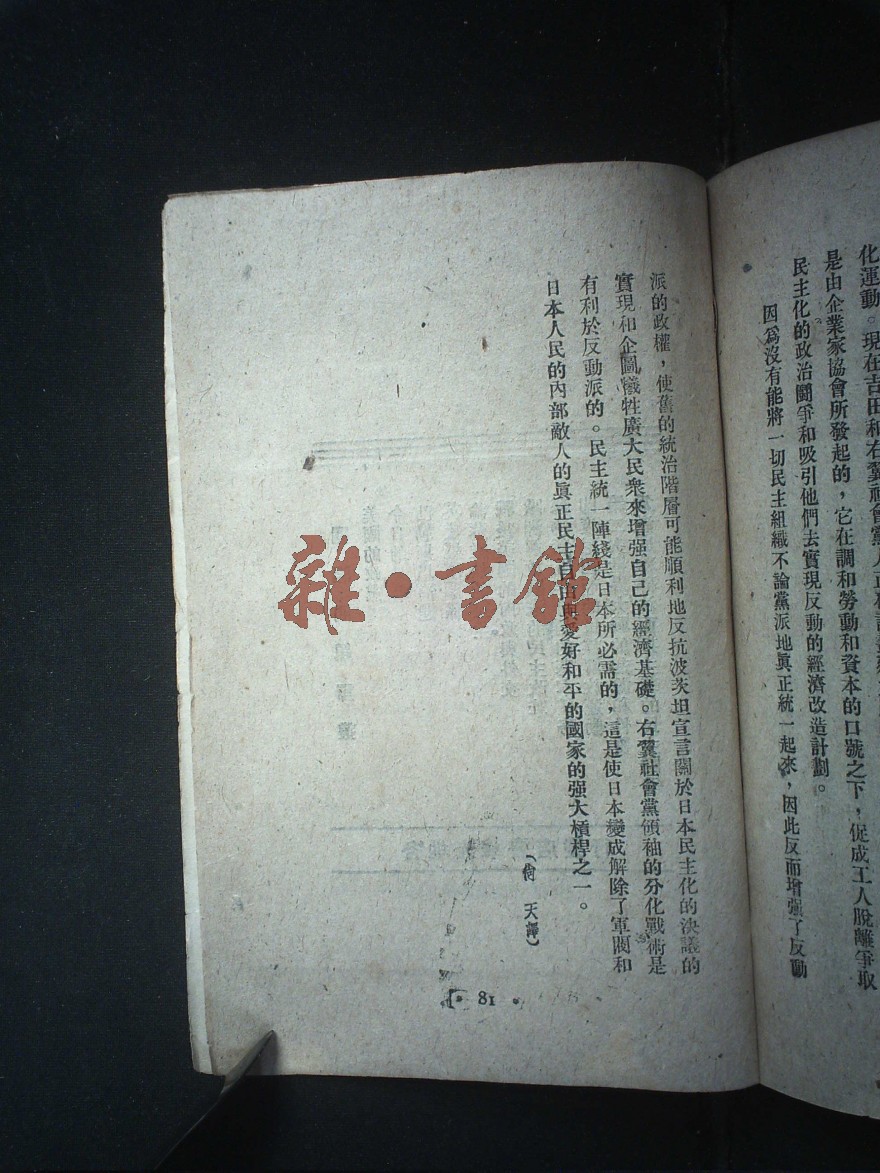 化運動。現在吉田和右翼社會黨人正
是由企業家協會所發起的，它在調和勞動和資本的口號之下，促成工人脫離爭取
民主化的政治鬪爭和吸引他們去實現反動的經濟改造計劃。
因爲沒有能將一切民主組織不論黨派地眞正統一起來，因此反而增强了反動
派的政權，使舊的統治階層可能順利地反抗波茨坦宣言關於日本民主化的決議的
實現和企圖犧牲廣大民衆來增强自己的經濟基礎。右翼社會黨領袖的分化戰術是
有利於反動派的。民主統一陣綫是日本所必需的，這是使日本變成解除了軍閥和
日本人民的內部敵人的眞正民主自由與愛好和平的國家的强大槓桿之一。
（倘　天譯）
• 81 •
雜•書館